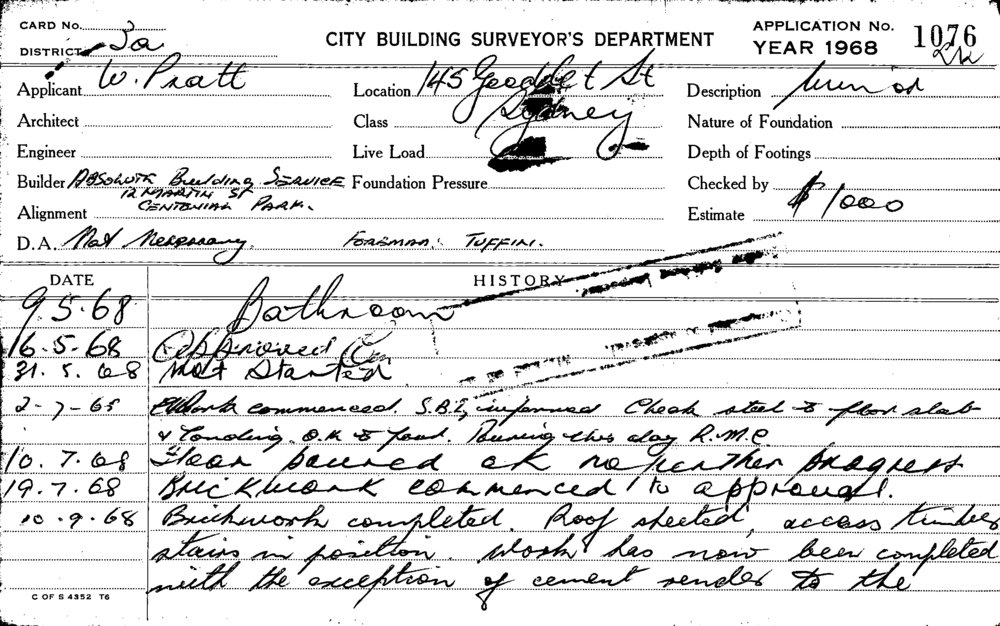 CARD No.
DISTRICT 3a
CITY BUILDING SURVEYOR'S DEPARTMENT
APPLICATION No. 1076
YEAR 1968
Applicant W. Pratt
Location 145 St
Sydney
Description
Architect
Class
Nature of Foundation
Engineer
Live Load
Depth of Footings
Builder ABSOLUTE BUILDING SERVICE
12 MARTIN ST
CENTENIAL PARK.
Foundation Pressure
Checked by
Alignment
Estimate $ 1000
D.A. Not Necessary. FOREMAN: TUFFIN.
DATE HISTORY
9.5.68 Bathroom
16.5.68 Approved
31.5.68 Not Started
2-7-68 Work commenced. S.B.I. informed Check steel to floor slab
& O.K to pour. Pouring this day R.M.C
10.7.68 Floor poured ok no further progress
19.7.68 Brickwork commenced to approval.
10.9.68 Brickwork completed. Roof sheeted, access timber
stairs in position. Work has now been completed
with the exception of cement render to the
C OF S 4352 T6